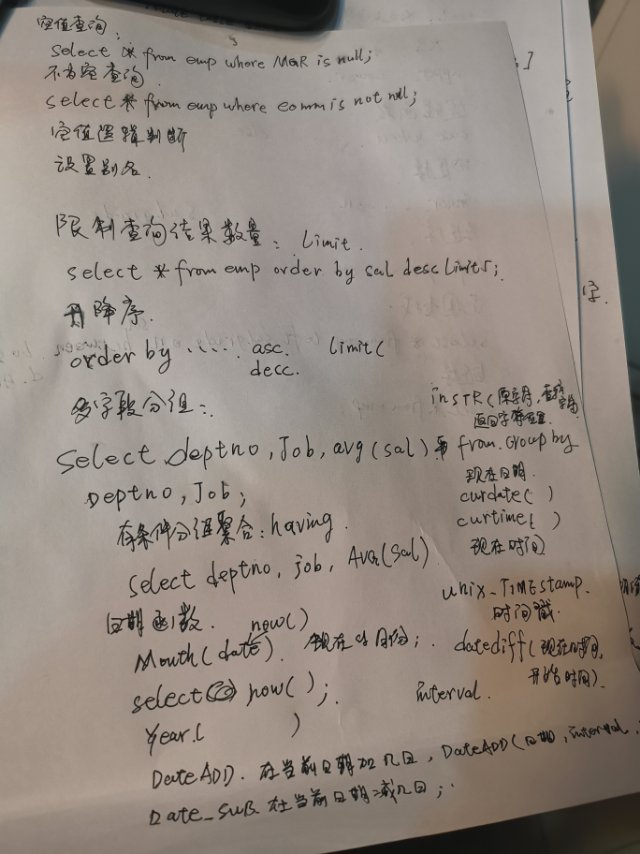 空值查询：
select * from emp where MGR is null;
不为空查询
select * from emp where comm is not null;
空值逻辑判断
设置别名.
限制查询结果数量：Limit.
select * from emp order by sal desc Limit 5;
升降序.
order by ..... asc. limit(
desc.
多字段分组：
select deptno, Job, avg(sal) from. Group by
Deptno, Job;
有条件分组聚合：having.
select deptno, job, AVG(sal).
inSTR(
返回字符位置.
现在日期.
curdate( )
curtime( )
现在时间
unix_TIMEstamp.
时间戳.
datediff(现在时间,
开始时间).
日期函数. now()
Month(date). 现在的月份;
select now( );
interval.
Year( )
DateADD. 在当前日期加几日, DateADD(日期, interval
Date_SUB 在当前日期减几日;
字.